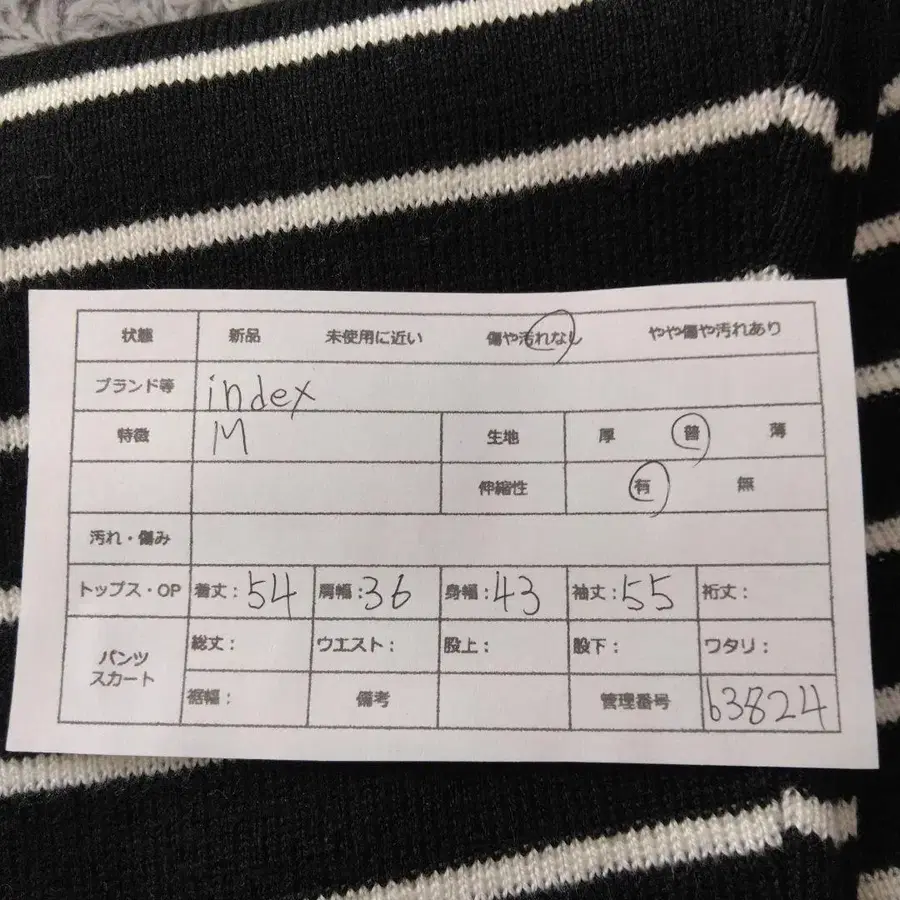 状態 新品 未使用に近い 傷や汚れなし やや傷や汚れあり
ブランド等 index
特徴 M 生地 厚 普 薄
伸縮性 有 無
汚れ・傷み
トップス・OP 着丈:54 肩幅:36 身幅:43 袖丈:55 裄丈:
パンツ スカート 総丈: ウエスト: 股上: 股下: ワタリ:
裾幅: 備考 管理番号 63824